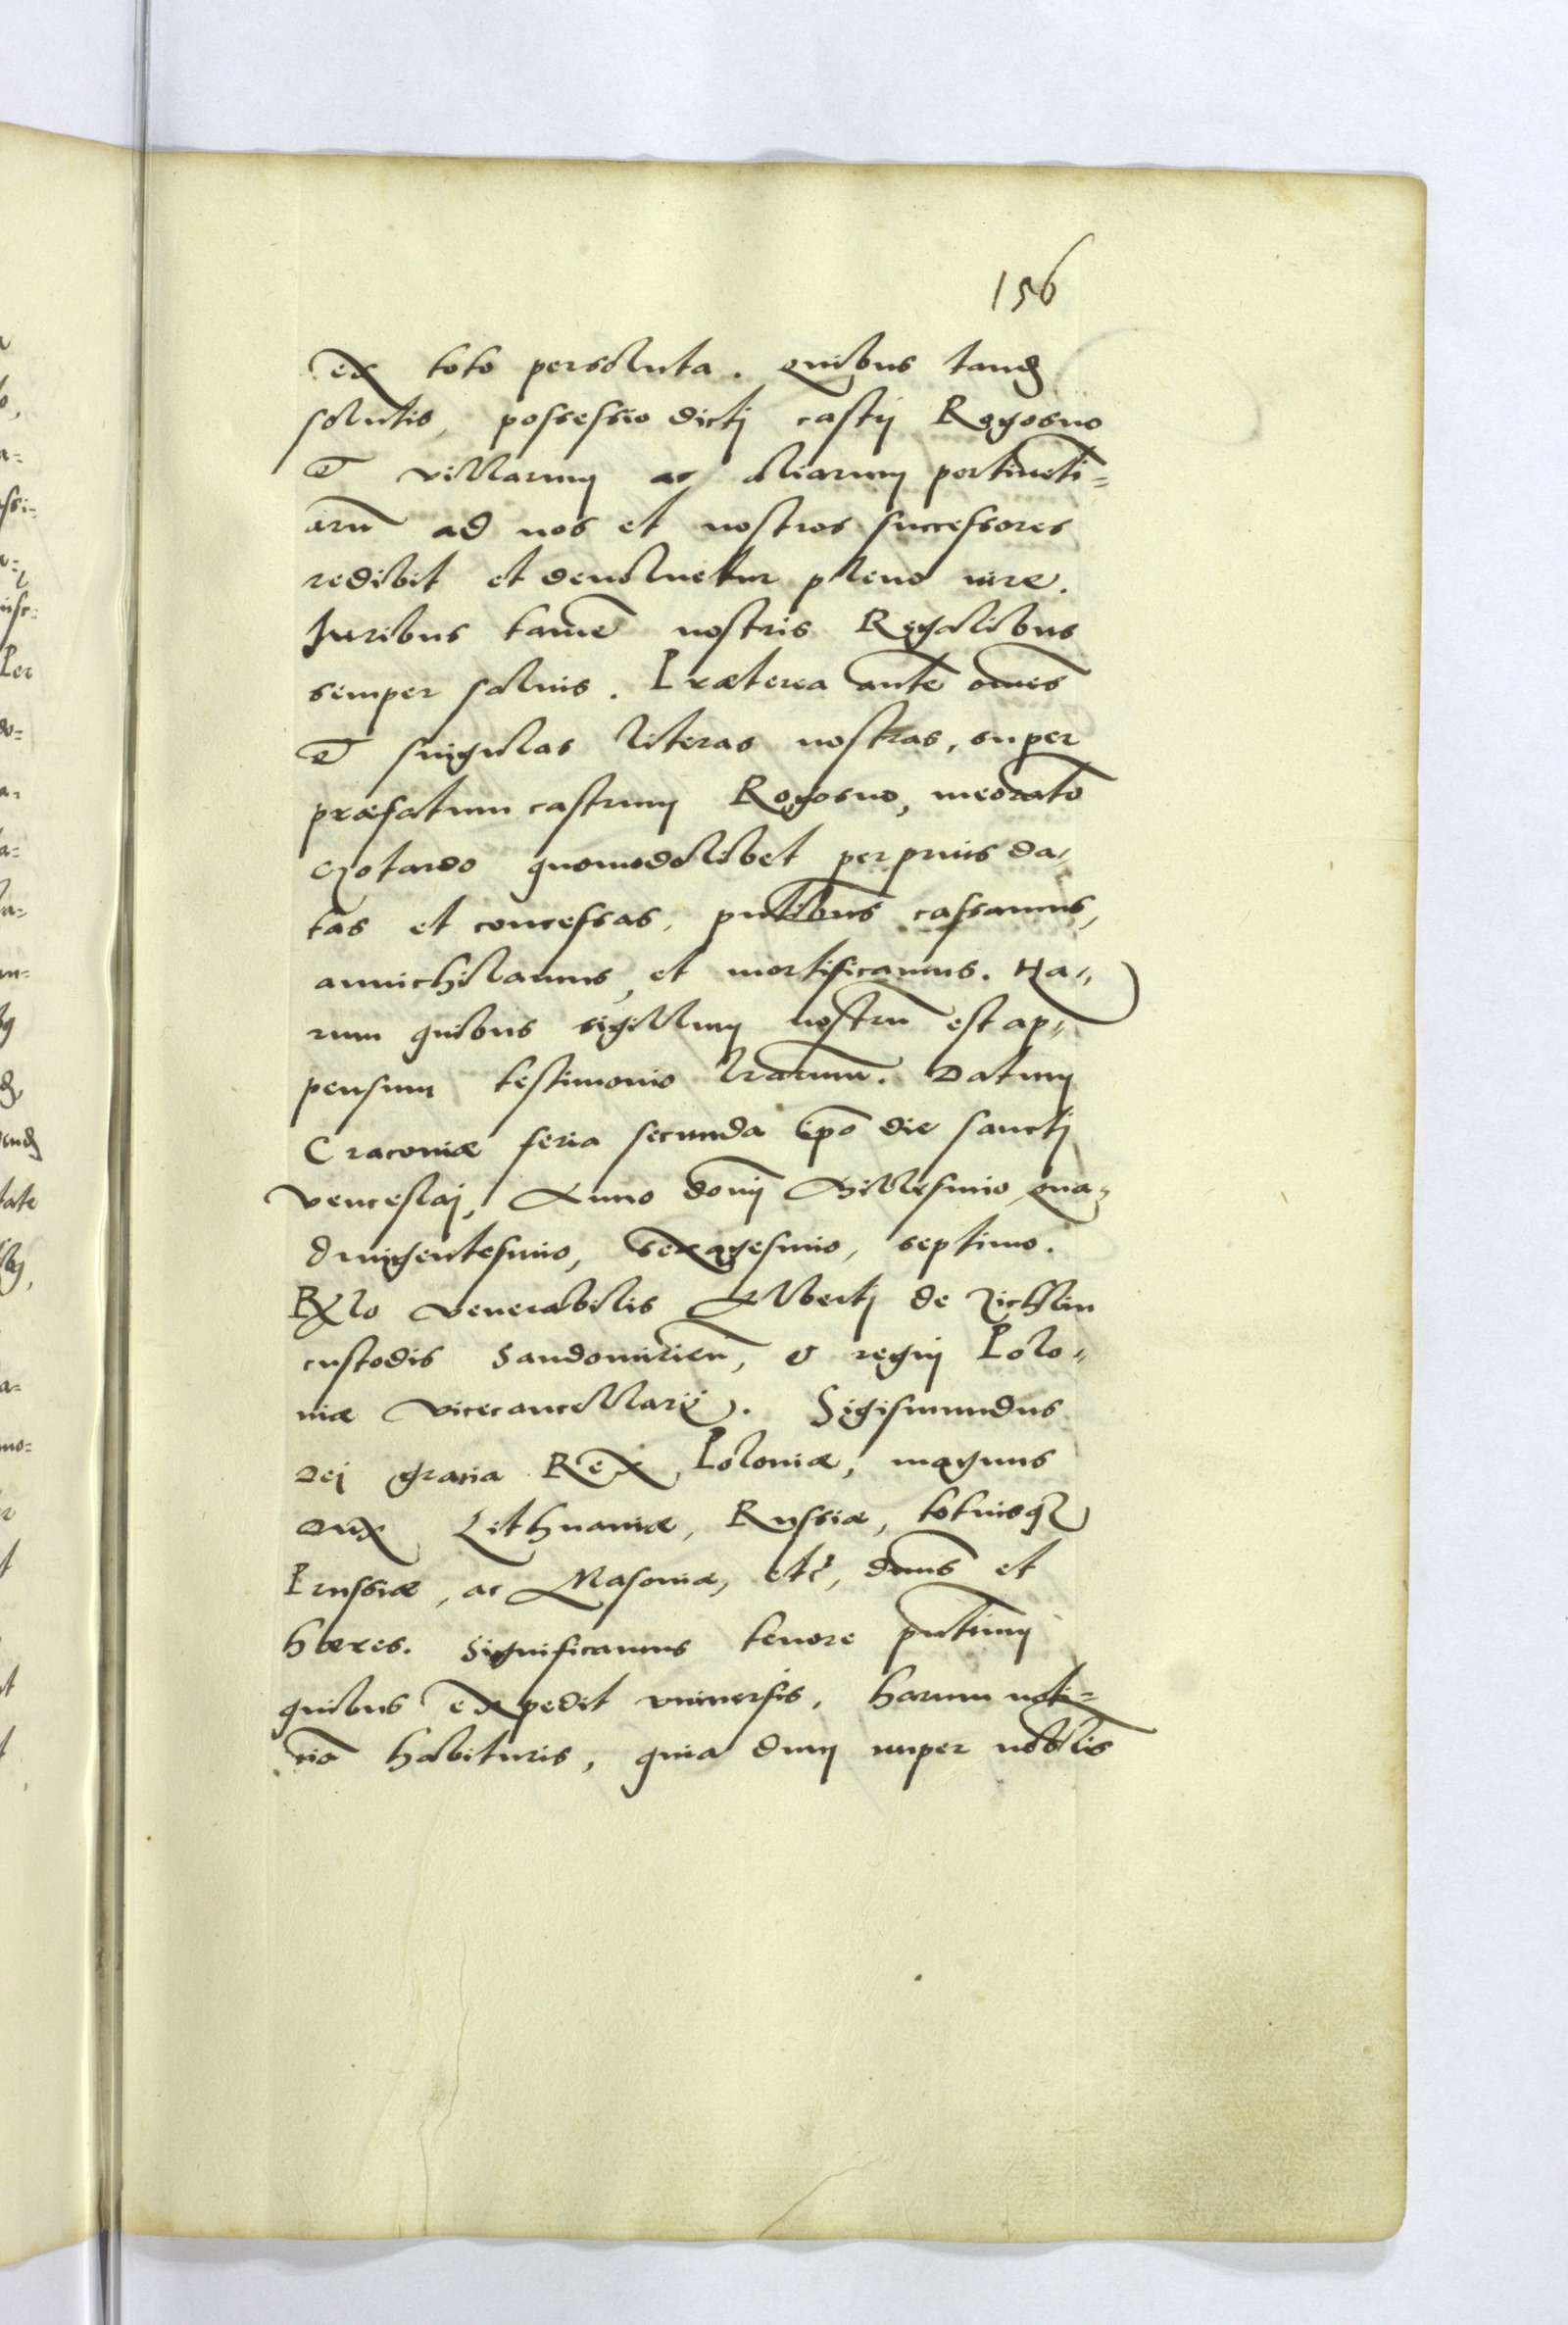 156
ex toto persoluta. Quibus tandẽ
solutis, possessio dictj castrj Rogosno
et villarum ac aliarum pertinẽti=
arũ ad nos et nostros successores
redibit et deuoluetur pleno iure.
Juribus tamẽ nostris Regalibus
semper saluis. Præterea autẽ om̃es
et singulas literas nostras, super
præfatum castrum Rogosno, meõrato
Gotardo quomodolibet per prius da=
tas et concessas, pñtibus cassamus,
annichilamus, et mortificamus. Ha=
rum quibus sigillum nostrũ est ap=
pensum testimonio lr̃arum. Datum
Cracouiæ feria secunda ip̃o die sanctj
Venceslaj, Anno dom̃j Millesimo qua=
dringentesimo, sexagesimo, septimo.
Rel̃o venerabilis Albertj de Zichlin
custodis Sandomirieñ, & regnj Polo=
niæ vicecancellarij. Sigismundus
Dej gratia Rex Poloniæ, magnus
Dux Lithuaniæ, Russiæ, totiusq̃
Prussiæ, ac Masouiæ, etc̃, dñus et
hæres. Significamus tenore pñtium
quibus expedit vniuersis, harum noti=
tiã habituris, quia dum nuper nobilis